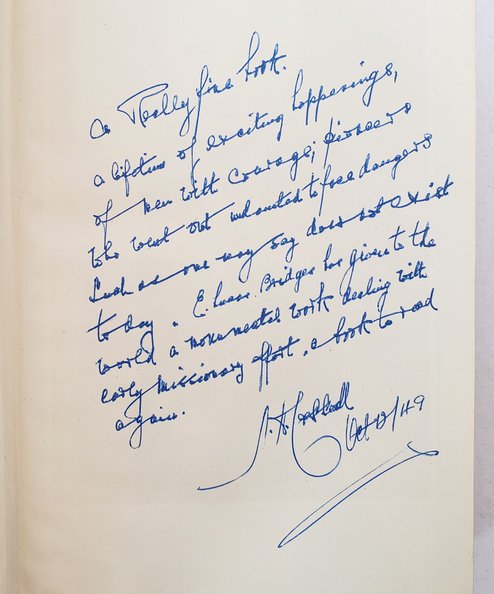 a Really fine book.
a lifetime of exciting happenings,
of men with courage; pioneers
who went out undaunted to face dangers
such as one may say does not exist
to day. E. Lucas Bridges has given to the
world a monumental work dealing with
early missionary effort, a book to read
again.
Oct 12/49